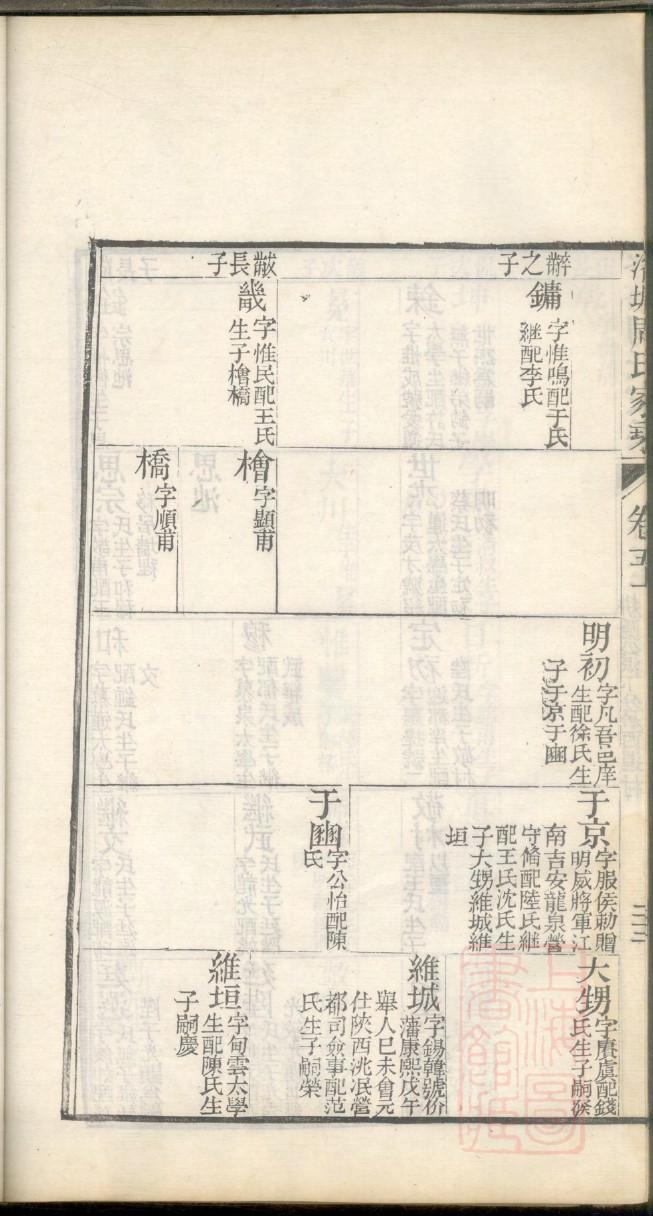 周氏家
卷五
之子
鏞
字惟鳴配于氏
繼配李氏
黻長子
畿
字惟民配王氏
生子檜橋
檜
字顯甫
橋
字順甫
明初
字凡吾邑庠
生配徐氏生
子于京于豳
于京
字服侯勅贈
明威將軍江
南吉安龍泉營
守備配陸氏繼
配王氏沈氏生
子大甥維城維
垣
于豳
字公怡配陳
氏
大甥
字賡虞配錢
氏生子嗣
維城
字錫韓號价
藩康熙戊午
舉人己未會元
仕陝西洮泯營
都司僉事配范
氏生子嗣榮
維垣
字甸雲太學
生配陳氏生
子嗣慶
上海圖
書館藏